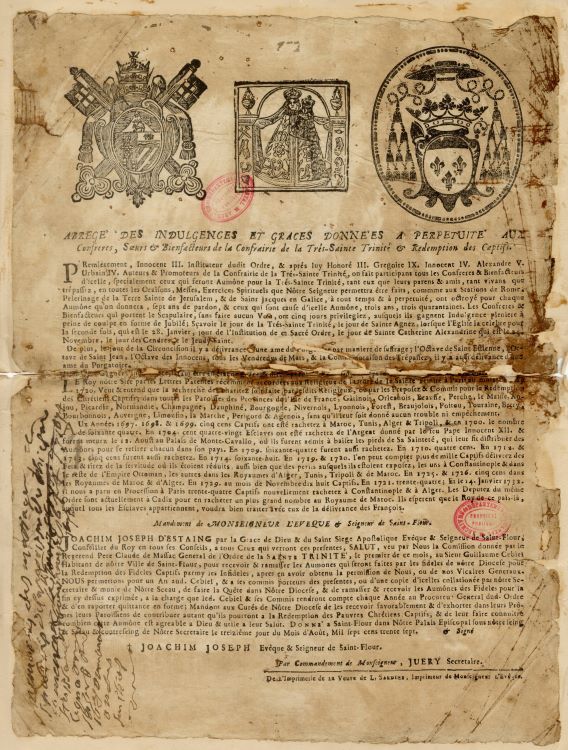 ABREGE' DES INDULGENCES ET GRACES DONNE'ES A PERPETUITE AUX
Confreres, Sœurs & Bienfacteurs de la Confrairie de la Trés-Sainte Trinité & Redemption des Captifs.
PRemiérement, Innocent III. Instituteur dudit Ordre, & aprés luy Honoré III. Gregoire IX. Innocent IV. Alexandre V.
Urbain IV. Auteurs & Promoteurs de la Confrairie de la Trés-Sainte Trinité, on fait participans tous les Confreres & Bienfacteurs
d'icelle, specialement ceux qui feront Aumône pour la Trés-Sainte Trinité, tant eux que leurs parens & amis, tant vivans que
trépassés, en toutes les Oraisons, Messes, Exercices Spirituels que Nôtre Seigneur permettra être faits, comme aux Stations de Rome,
Pelerinage de la Terre Sainte de Jerusalem, & de Saint Jacques en Galice, à tout temps & à perpetuité, ont octroyé pour chaque
Aumône qu'on donnera, sept ans de pardon, & ceux qui sont cause d'icelle Aumône, trois ans, trois quarantaines. Les Confreres &
Bienfacteurs qui portent le Scapulaire, sans faire aucun Vœu, ont cinq jours privilegiés, ausquels ils gagnent Indulgence pleniere à
peine de coulpe en forme de Jubilé; Sçavoir le jour de la Trés-Sainte Trinité, le jour de Sainte Agnez, lorsque l'Eglise la celebre pour
la seconde fois, qui est le 28. Janvier, jour de l'Institution de ce Sacré Ordre, le jour de Sainte Catherine Alexandrine qui est le
Novembre, le jour des Cendres & le Jeudy-Saint.
De plus, le jour de la Circoncision, il y a délivrance d'une ame du par maniere de suffrage; l'Octave de Saint Estienne,
de Saint Jean, l'Octave des Innocens, tous les Vendredis de Mars, & la Commemoration des Trépassez, il y a aussi délivrance d'une
ame du Purgatoire.
LE Roy nôtre Sire par ses Lettres Patentes accordées aux Religieux de l'Ordre de la Sainte Trinité
1720. Veut & entend que la recherche des
des Chrétiens Captifs, dans toutes les Paroisses des Provinces de l'Isle de France, Gâtinois, Orleanois, Beausse, Perche, le Maine,
Picardie, Normandie, Champagne, Dauphiné, Bourgogne, Nivernois, Lyonnois, Forest, Beaujolois, Poitou, Touraine, Berry,
Bourbonnois, Auvergne, Limosin, la Marche, Perigord & Agenois, sans qu'il leur soit donné aucun trouble ni empéchement.
Ux Années 1697. 1698. & 1699. cinq cens Captifs ont été rachetez à Maroc, Tunis, Alger & Tripoli, & en 1700. le nombre
de Soixante quatre. En 1704. cent quatre-vingt Esclaves ont été rachetez de l'Argent donné par le feu Pape Innocent XII. &
furent menez le 12. Aoust au Palais de Monte-Cavallo, où ils furent admis à baiser les pieds de Sa Sainteté, qui leur fit distribuer des
Aumônes pour se retirer chacun dans son pays. En 1709. soixante-quatre furent aussi rachetez. En 1710. quatre cens. En 1714. &
cinq cens furent aussi rachetez. En 1714. soixante-huit. En 1719. & 1720. l'on peut compter plus de mille Captifs délivrez des
fers & tirez de la servitude où ils étoient réduits, aussi bien que des perils ausquels ils étoient exposez, les uns à Constantinople & dans
le reste de l'Empire Ottoman, les autres dans les Royaumes d'Alger, Tunis, Tripoli & de Maroc. En 1725. & 1726. cinq cens dans
les Royaumes de Maroc & d'Alger. En 1729. au mois de Novembre soixante-huit Captifs. En 1731. trente-quatre; & le 14. Janvier 1732.
il nous a paru en Procession à Paris trente-quatre Captifs nouvellement rachetez à Constantinople & à Alger. Les Deputez du même
Ordre sont actuellement à Cadix pour en racheter un plus grand nombre au Royaume de Maroc. Ils esperent que le Roy de ce païs-là,
auquel tous les Esclaves appartiennent, voudra bien traiter avec eux de la délivrance des François.
Mandement de MONSEIGNEUR L'EVEQUE & Seigneur de Saint-Flour.
JOACHIM JOSEPH D'ESTAING par la Grace de Dieu & du Saint Siege Apostolique Evêque & Seigneur de Saint-Flour,
Conseiller du Roy en tous ses Conseils, à tous Ceux qui verront ces presentes, SALUT, veu par Nous la Comission donnée par le
Reverend Pere Claude de Massac General de l'Ordre de la SAINTE TRINITÉ, le premier de ce mois, au Sieur Guillaume Cebiel
Habitant de nôtre Ville de Saint-Flour, pour recevoir & ramasser les Aumones qui seront faites par les fidéles de nôtre Diocese pour
la Redemption des Fidéles Captifs parmy les Infidéles, aprés en avoir obtenu la permission de Nous, ou de nos Vicaires Generaux.
NOUS permettons pour un An aud. Cebiel, & à ses commis porteurs des presentes, ou d'une copie d'icelles collationnée par nôtre Se-
cretaire & munie de Nôtre Sceau, de faire la Quête dans Nôtre Diocese, & de ramasser & recevoir les Aumônes des Fidéles pour la
fin cy dessus exprimée, à la charge que led. Cebiel & ses Commis rendront compte chaque Année au Procureur General dud. Ordre
& d'en raporter quittance en forme; Mandons aux Curés de Nôtre Diocese de les recevoir favorablement & d'exhorter dans leurs Prô-
nes leurs Paroissiens de contribuer autant qu'ils pourront à la Redemption des Pauvres Chrétiens Captifs, & de leur faire connoître
combien cette Aumône est agreable à Dieu & utile à leur Salut. DONNE' à Saint-Flour dans Nôtre Palais Episcopal sous nôtre seing
& Sceau & contreseing de Nôtre Secretaire le treizième jour du Mois d'Août, Mil sept cens trente sept, & Signé
† JOACHIM JOSEPH Evêque & Seigneur de Saint-Flour.
Par Commandement de Monseigneur, JUERY Secretaire.
De l'Imprimerie de la Veuve de L. SARDINE, Imprimeur de Monseigneur l'Evêque.